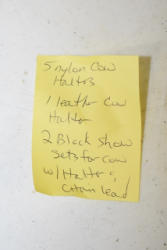 5 nylon Cow
Halters
1 leather Cow
Halter
2 Black show
sets for cow
w/ Halter &
Chain lead